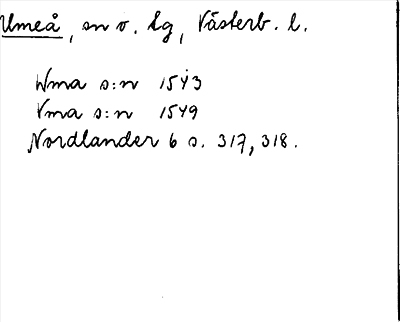 Umeå, sn o. lg, Västerb. l.
Wma s:n 1543
Vma s:n 1549
Nordlander 6 s. 317, 318.